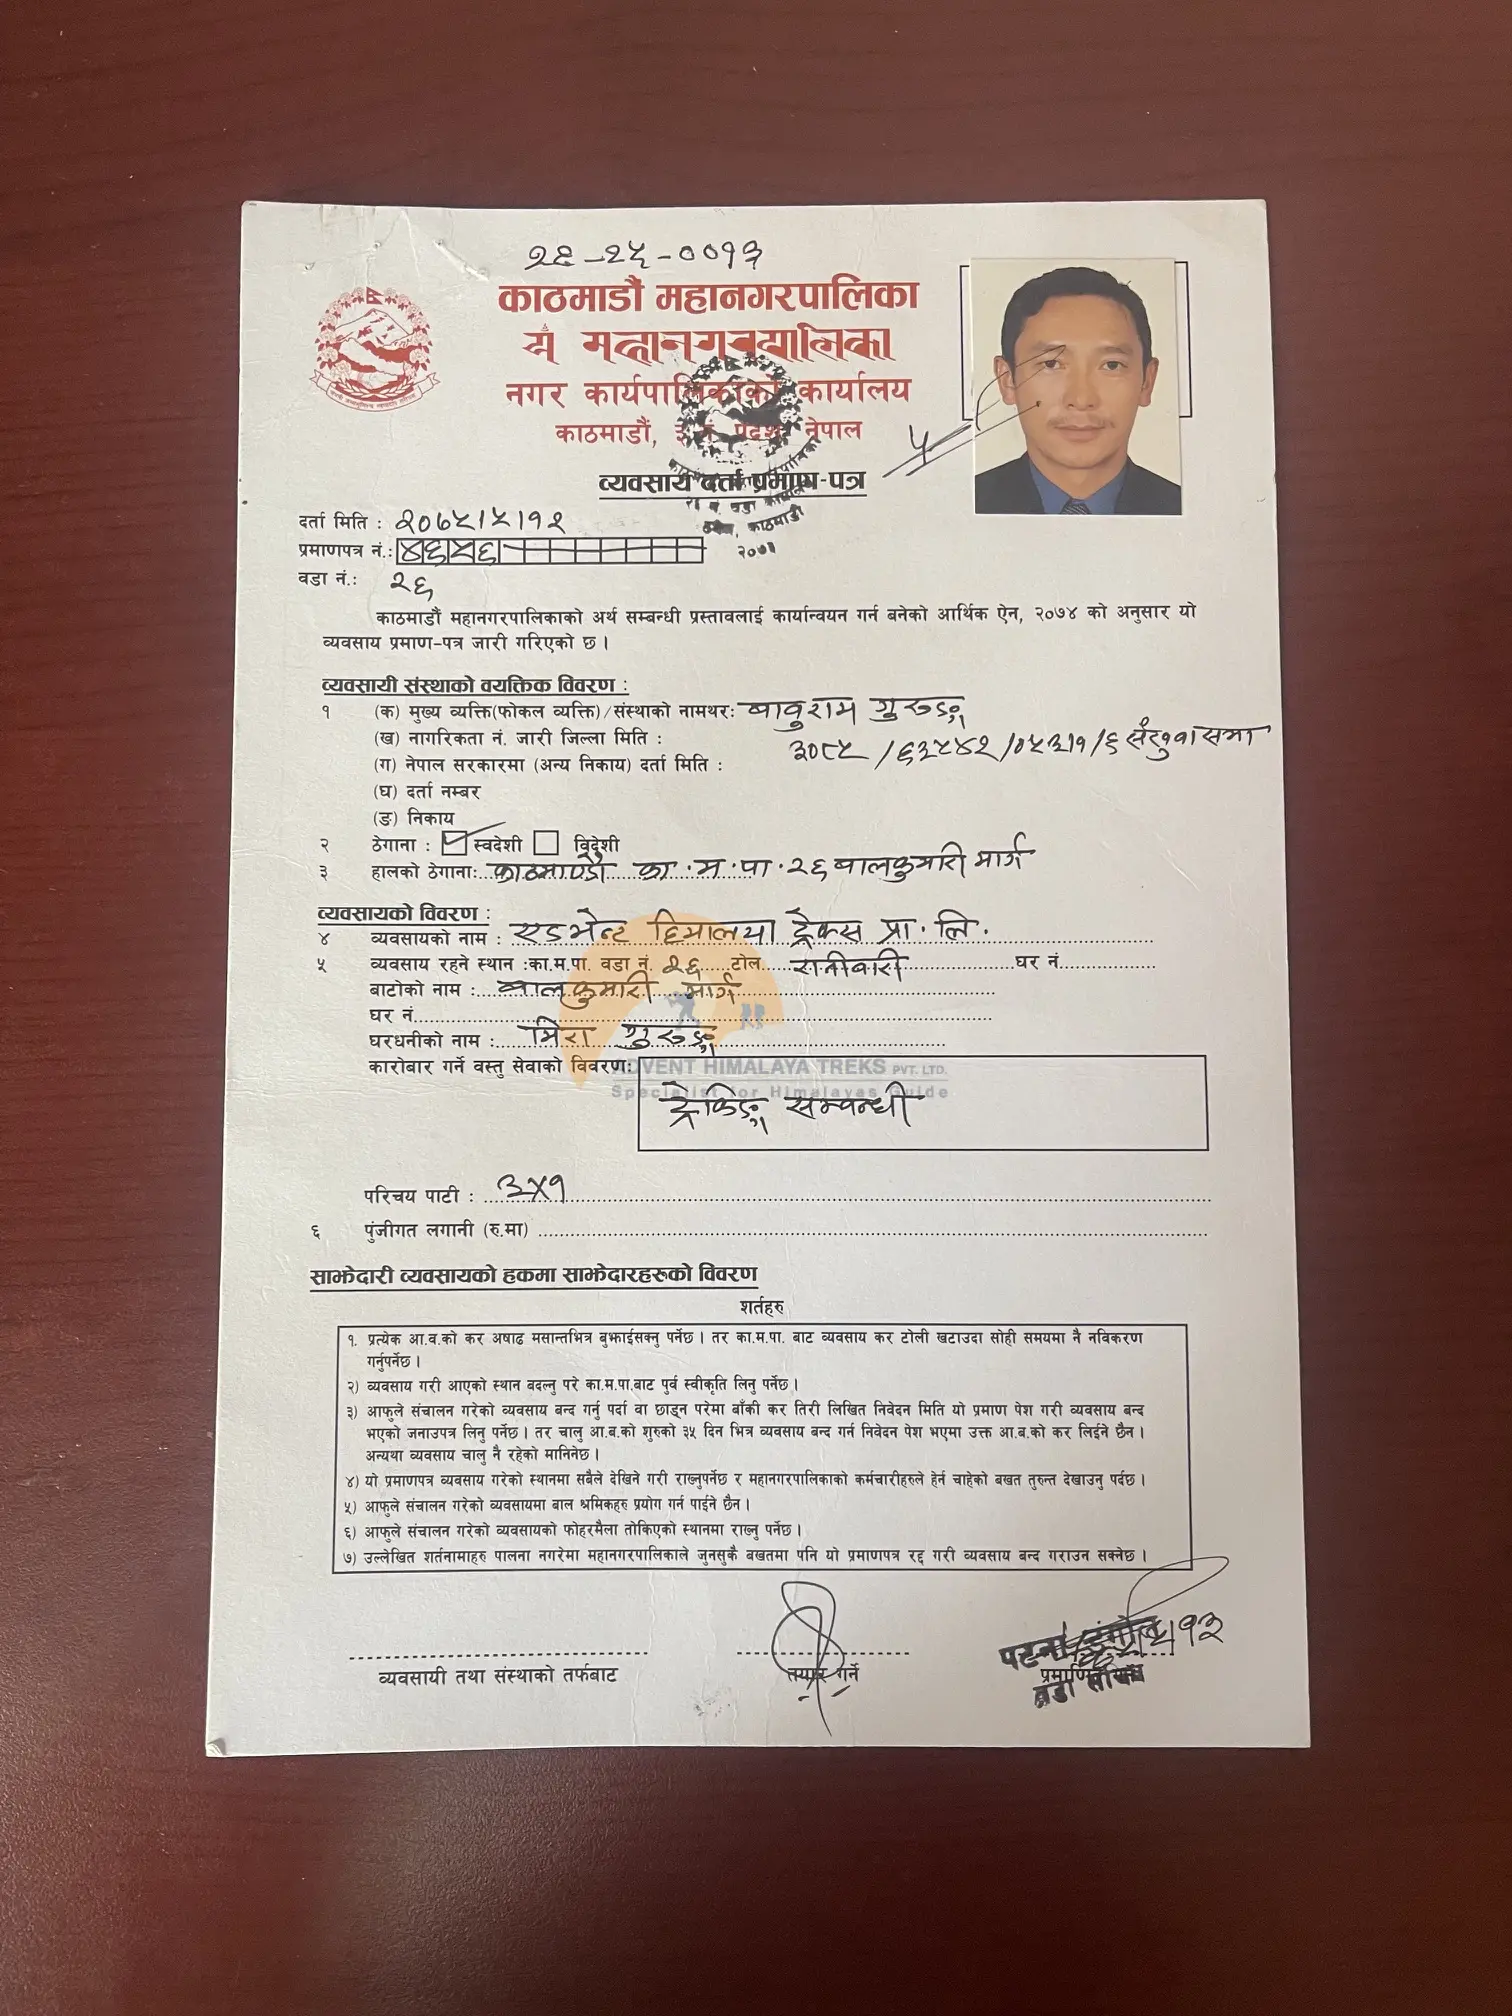 २६-२५-००१३
काठमाडौं महानगरपालिका
नगर कार्यपालिकाको कार्यालय
काठमाडौं, ३ नं. प्रदेश, नेपाल
व्यवसाय दर्ता प्रमाण-पत्र
दर्ता मिति : २०७५।५।१२
प्रमाणपत्र नं.:
वडा नं.: २६
काठमाडौं महानगरपालिकाको अर्थ सम्बन्धी प्रस्तावलाई कार्यान्वयन गर्न बनेको आर्थिक ऐन, २०७४ को अनुसार यो
व्यवसाय प्रमाण-पत्र जारी गरिएको छ ।
व्यवसायी संस्थाको वयक्तिक विवरण :
१ (क) मुख्य व्यक्ति(फोकल व्यक्ति)/संस्थाको नामथर: बाबुराम गुरुङ्ग
(ख) नागरिकता नं. जारी जिल्ला मिति : संखुवासभा
(ग) नेपाल सरकारमा (अन्य निकाय) दर्ता मिति :
(घ) दर्ता नम्बर
(ङ) निकाय
२ ठेगाना : स्वदेशी विदेशी
३ हालको ठेगाना: काठमाण्डौ का.म.पा.२६ बालकुमारी मार्ग
व्यवसायको विवरण :
४ व्यवसायको नाम : एडभेन्ट हिमालया ट्रेक्स प्रा. लि.
५ व्यवसाय रहने स्थान :का.म.पा. वडा नं. २६ टोल रानीवारी घर नं.
बाटोको नाम : बालकुमारी मार्ग
घर नं.
घरधनीको नाम : मिरा गुरुङ्ग
कारोबार गर्ने वस्तु सेवाको विवरण:
ADVENT HIMALAYA TREKS PVT. LTD.
Specialist for Himalayas Guide
ट्रेकिङ्ग सम्बन्धी
परिचय पाटी : ३x१
६ पुंजीगत लगानी (रु.मा)
साझेदारी व्यवसायको हकमा साझेदारहरुको विवरण
शर्तहरु
१. प्रत्येक आ.व.को कर अषाढ मसान्तभित्र बुझाईसक्नु पर्नेछ । तर का.म.पा. बाट व्यवसाय कर टोली खटाउदा सोही समयमा नै नविकरण
गर्नुपर्नेछ ।
२) व्यवसाय गरी आएको स्थान बदल्नु परे का.म.पा.बाट पुर्व स्वीकृति लिनु पर्नेछ ।
३) आफुले संचालन गरेको व्यवसाय बन्द गर्नु पर्दा वा छाड्न परेमा बाँकी कर तिरी लिखित निवेदन मिति यो प्रमाण पेश गरी व्यवसाय बन्द
भएको जनाउपत्र लिनु पर्नेछ । तर चालु आ.ब.को शुरुको ३५ दिन भित्र व्यवसाय बन्द गर्न निवेदन पेश भएमा उक्त आ.ब.को कर लिईने छैन ।
अन्यथा व्यवसाय चालु नै रहेको मानिनेछ ।
४) यो प्रमाणपत्र व्यवसाय गरेको स्थानमा सबैले देखिने गरी राख्नुपर्नेछ र महानगरपालिकाको कर्मचारीहरुले हेर्न चाहेको बखत तुरुन्त देखाउनु पर्दछ ।
५) आफुले संचालन गरेको व्यवसायमा बाल श्रमिकहरु प्रयोग गर्न पाईने छैन ।
६) आफुले संचालन गरेको व्यवसायको फोहरमैला तोकिएको स्थानमा राख्नु पर्नेछ ।
७) उल्लेखित शर्तनामाहरु पालना नगरेमा महानगरपालिकाले जुनसुकै बखतमा पनि यो प्रमाणपत्र रद्द गरी व्यवसाय बन्द गराउन सक्नेछ ।
व्यवसायी तथा संस्थाको तर्फबाट
तयार गर्ने
वडा सचिव